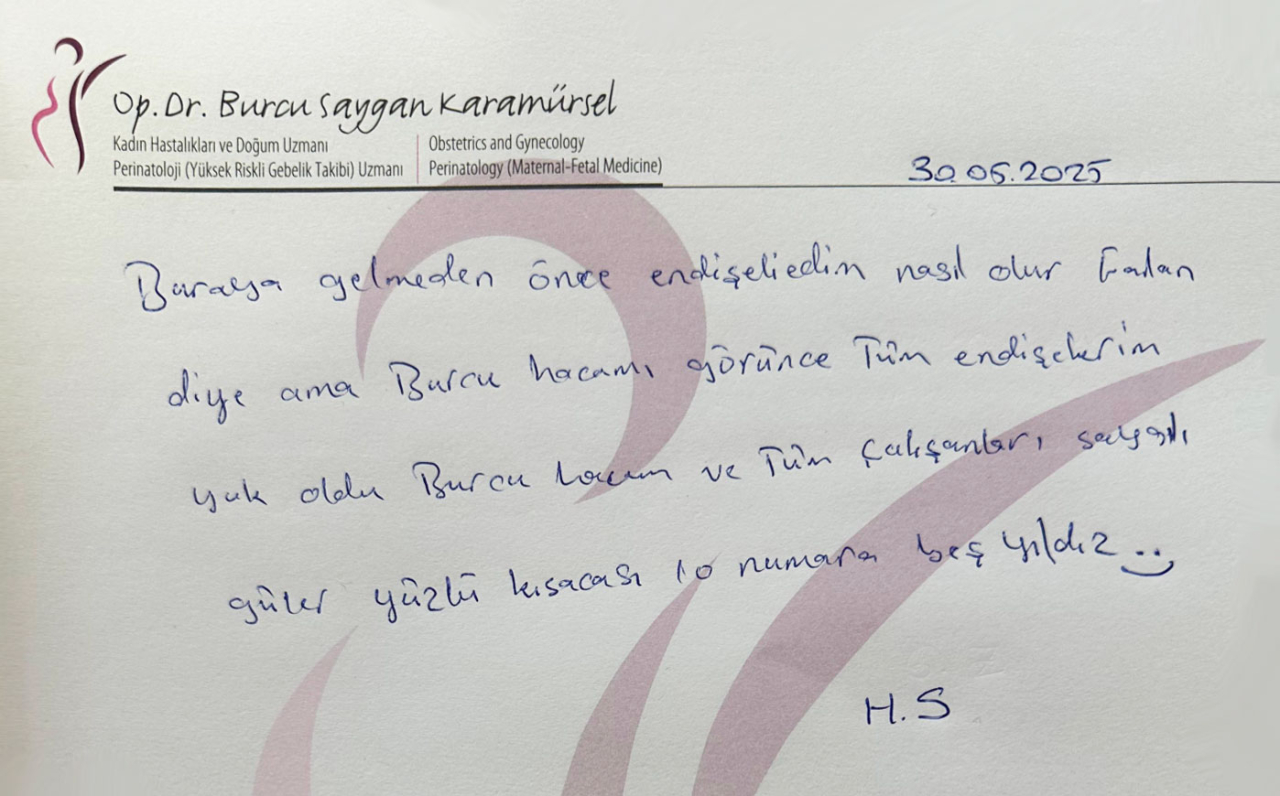 Op. Dr. Burcu Saygan Karamürsel
Kadın Hastalıkları ve Doğum Uzmanı
Perinatoloji (Yüksek Riskli Gebelik Takibi) Uzmanı
Obstetrics and Gynecology
Perinatology (Maternal-Fetal Medicine)
30.06.2025
Buraya gelmeden önce endişeliedim nasıl olur Falan
diye ama Burcu hocamı görünce Tüm endişelerim
yok oldu Burcu hocam ve Tüm Çalışanları saygılı
güler yüzlü kısacası 10 numara beş yıldız
H.S